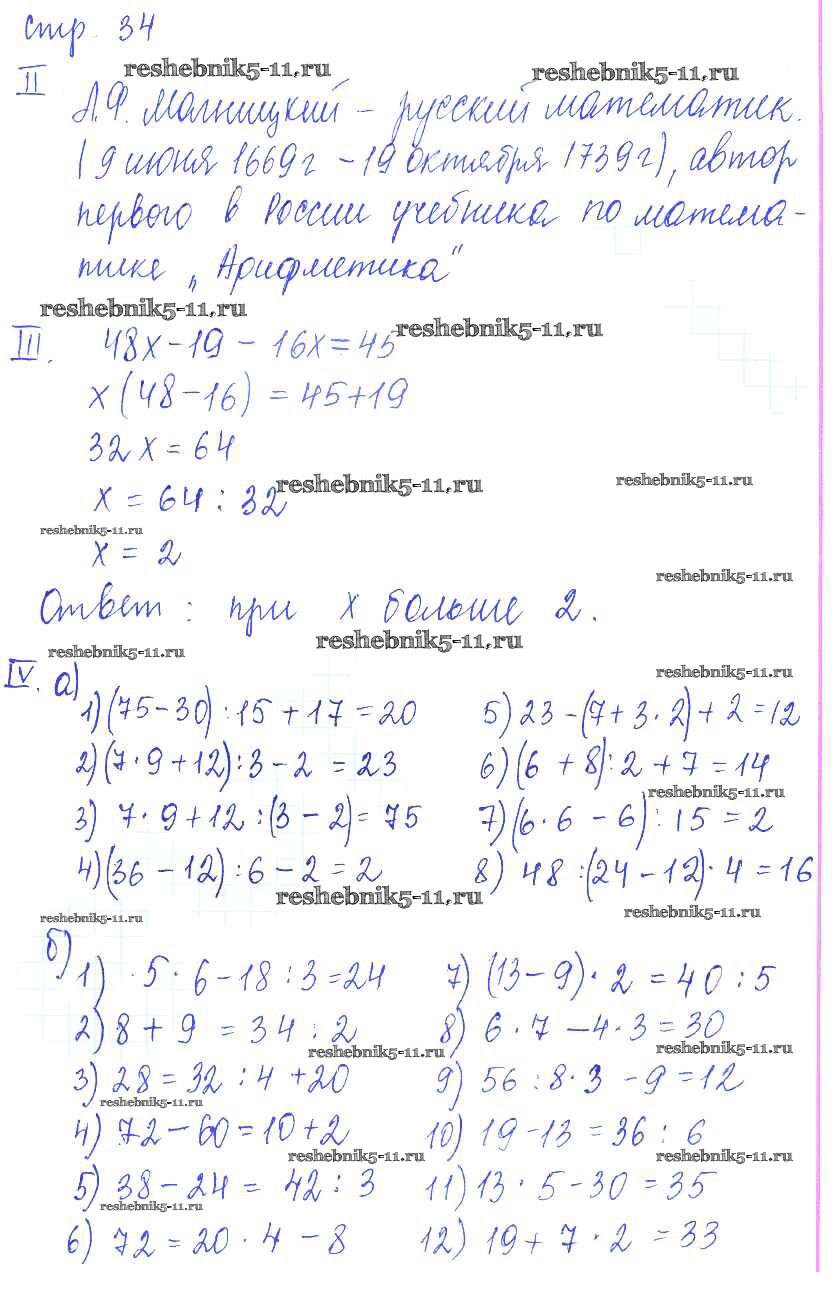 стр. 34
reshebnik5-11.ru
reshebnik5-11.ru
II Л.Ф. Магницкий – русский математик.
(9 июня 1669г – 19 октября 1739г), автор
первого в России учебника по матема-
тике „Арифметика"
reshebnik5-11.ru
reshebnik5-11.ru
III. 48х – 19 – 16х = 45
х(48 – 16) = 45 + 19
32х = 64
х = 64 : 32
reshebnik5-11.ru
reshebnik5-11.ru
reshebnik5-11.ru
х = 2
reshebnik5-11.ru
Ответ: при х больше 2.
reshebnik5-11.ru
reshebnik5-11.ru
reshebnik5-11.ru
IV. а)
1) (75 – 30) : 15 + 17 = 20
2) (7 · 9 + 12) : 3 – 2 = 23
3) 7 · 9 + 12 : (3 – 2) = 75
4) (36 – 12) : 6 – 2 = 2
5) 23 – (7 + 3 · 2) + 2 = 12
6) (6 + 8) : 2 + 7 = 14
reshebnik5-11.ru
7) (6 · 6 – 6) : 15 = 2
8) 48 : (24 – 12) · 4 = 16
reshebnik5-11.ru
reshebnik5-11.ru
reshebnik5-11.ru
б)
1) 5 · 6 – 18 : 3 = 24
2) 8 + 9 = 34 : 2
reshebnik5-11.ru
3) 28 = 32 : 4 + 20
reshebnik5-11.ru
4) 72 – 60 = 10 + 2
reshebnik5-11.ru
5) 38 – 24 = 42 : 3
reshebnik5-11.ru
6) 72 = 20 · 4 – 8
7) (13 – 9) · 2 = 40 : 5
8) 6 · 7 – 4 · 3 = 30
reshebnik5-11.ru
9) 56 : 8 · 3 – 9 = 12
10) 19 – 13 = 36 : 6
reshebnik5-11.ru
11) 13 · 5 – 30 = 35
12) 19 + 7 · 2 = 33